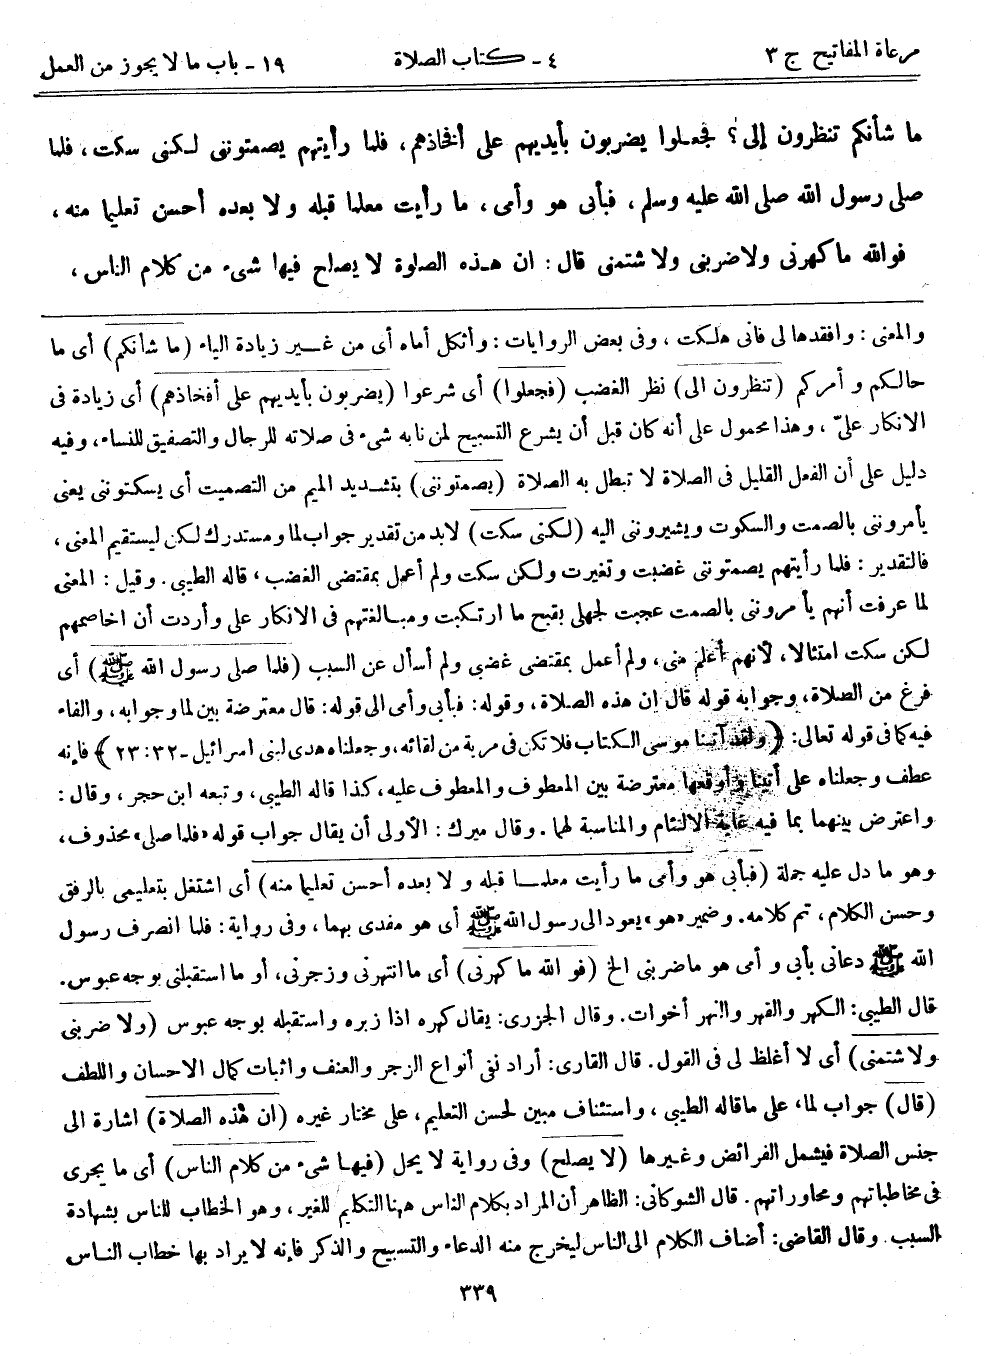 مرعاة المفاتيح ج ٣
٤ - كتاب الصلاة
١٩ - باب ما لا يجوز من العمل
ما شأنكم تنظرون إلى؟ فجعلوا يضربون بأيديهم على أفخاذهم، فلما رأيتهم يصمتوننى لكنى سكت، فلما
صلى رسول الله صلى الله عليه وسلم، فبأبى هو وأمى، ما رأيت معلما قبله ولا بعده أحسن تعليما منه،
فوالله ما كهرنى ولا ضربنى ولا شتمنى قال: ان هذه الصلوة لا يصلح فيها شىء من كلام الناس،
والمعنى: وافقدها لى فانى هلكت، وفى بعض الروايات: وأثكل أماه أى من غير زيادة الياء (ما شأنكم) أى ما
حالكم وأمركم (تنظرون الى) نظر الغضب (فجعلوا) أى شرعوا (يضربون بأيديهم على أفخاذهم) أى زيادة فى
الانكار علىّ، وهذا محمول على أنه كان قبل أن يشرع التسبيح لمن نابه شىء فى صلاته للرجال والتصفيق للنساء، وفيه
دليل على أن الفعل القليل فى الصلاة لا تبطل به الصلاة (يصمتوننى) بتشديد الميم من التصميت أى يسكتوننى يعنى
يأمروننى بالصمت والسكوت ويشيروننى اليه (لكنى سكت) لابد من تقدير جواب لما ومستدرك لكن ليستقيم المعنى،
فالتقدير: فلما رأيتهم يصمتوننى غضبت وتغيرت ولكن سكت ولم أعمل بمقتضى الغضب، قاله الطيبى. وقيل: المعنى
لما عرفت أنهم يأمروننى بالصمت عجبت لجهلى بقبح ما ارتكبت ومبالغتهم فى الانكار على وأردت أن اخاصمهم
لكن سكت امتثالا، لأنهم أعلم منى، ولم أعمل بمقتضى غضبى ولم أسأل عن السبب (فلما صلى رسول الله ﷺ) أى
فرغ من الصلاة، وجوابه قوله قال إن هذه الصلاة، وقوله: فبأبى وأمى الى قوله: قال معترضة بين لما وجوابه، والفاء
فيه كما فى قوله تعالى: ﴿ولقد آتينا موسى الكتاب فلا تكن فى مرية من لقائه، وجعلناه هدى لبنى اسرائيل - ٣٢:٢٣﴾ فإنه
عطف وجعلناه على أتينا وأوقعها معترضة بين المعطوف والمعطوف عليه، كذا قاله الطيبى، وتبعه ابن حجر، وقال:
واعترض بينهما بما فيه غاية الالتئام والمناسبة لهما. وقال ميرك: الأولى أن يقال جواب قوله «فلما صلى» محذوف،
وهو ما دل عليه جملة (فبأبى هو وأمى ما رأيت معلما قبله ولا بعده أحسن تعليما منه) أى اشتغل بتعليمى بالرفق
وحسن الكلام، تم كلامه. وضمير «هو» يعود الى رسول الله ﷺ أى هو مفدى بهما، وفى رواية: فلما انصرف رسول
الله ﷺ دعانى بأبى وأمى هو ما ضربنى الخ (فو الله ما كهرنى) أى ما انتهرنى وزجرنى، أو ما استقبلنى بوجه عبوس.
قال الطيبى: الكهر والقهر والنهر أخوات. وقال الجزرى: يقال كهره اذا زبره واستقبله بوجه عبوس (ولا ضربنى
ولا شتمنى) أى لا أغلظ لى فى القول. قال القارى: أراد نفى أنواع الزجر والعنف واثبات كمال الاحسان واللطف
(قال) جواب لما، على ما قاله الطيبى، واستئناف مبين لحسن التعليم، على مختار غيره (ان هذه الصلاة) اشارة الى
جنس الصلاة فيشمل الفرائض وغيرها (لا يصلح) وفى رواية لا يحل (فيها شىء من كلام الناس) أى ما يجرى
فى مخاطباتهم ومحاوراتهم. قال الشوكانى: الظاهر أن المراد بكلام الناس ههنا التكليم للغير، وهو الخطاب للناس بشهادة
السبب. وقال القاضى: أضاف الكلام الى الناس ليخرج منه الدعاء والتسبيح والذكر فإنه لا يراد بها خطاب الناس
٣٣٩